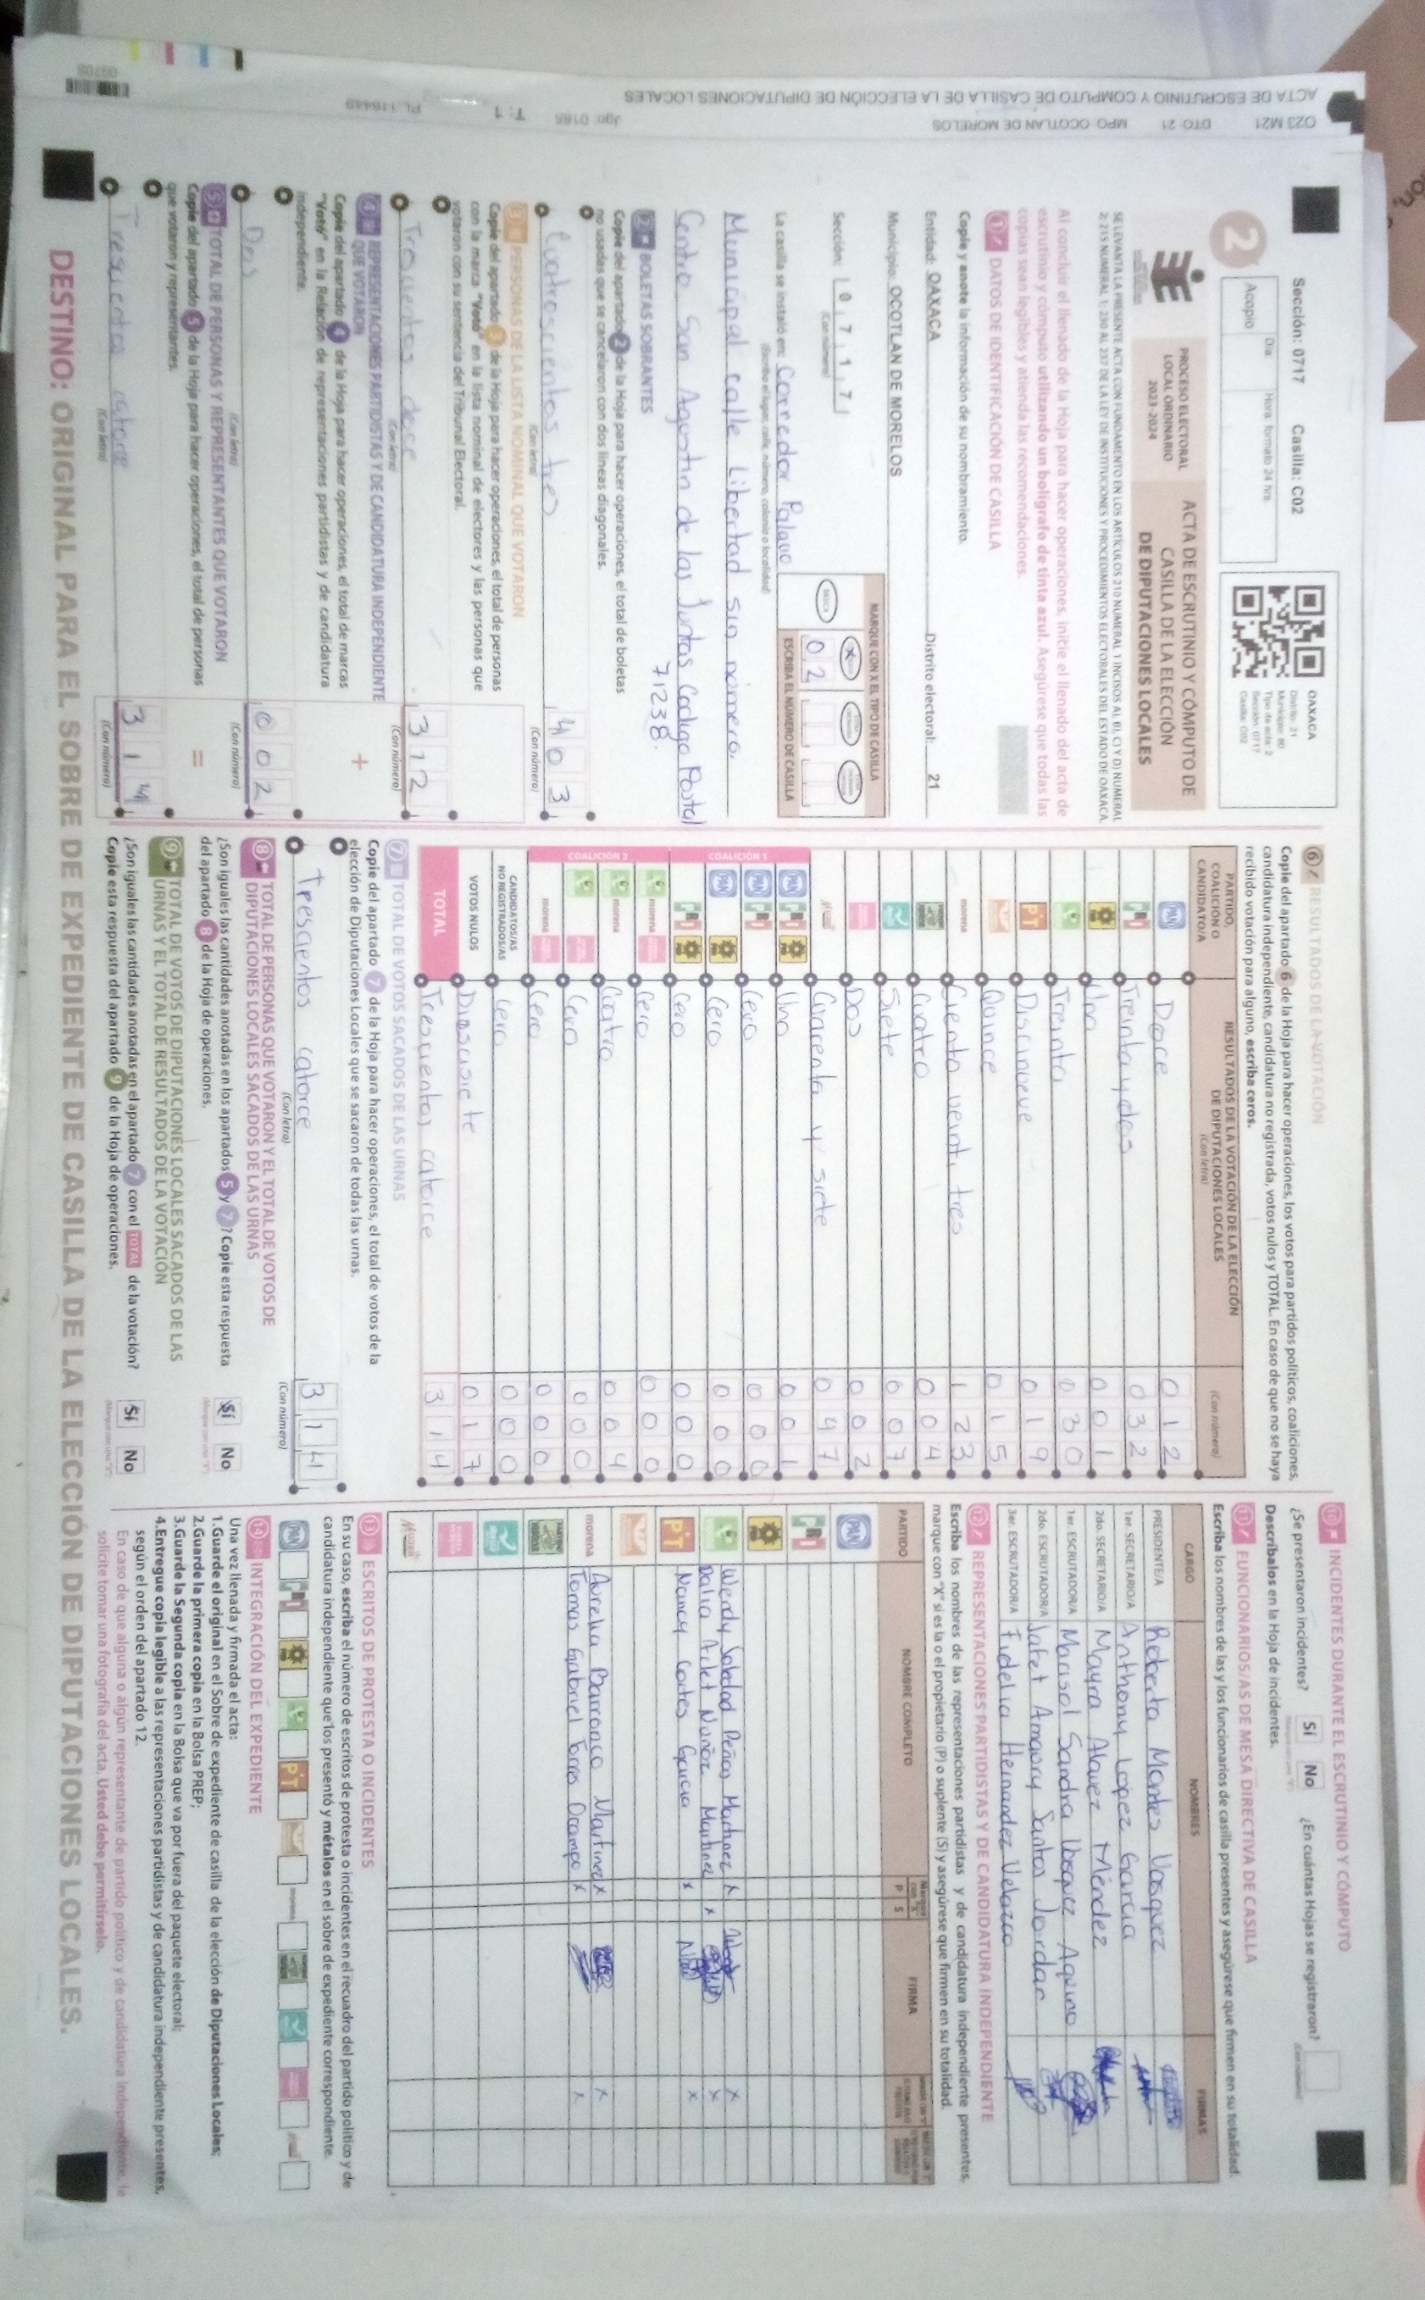 Sección: 0717 Casilla: C02
Día: Hora: formato 24 hrs.
Acopio
2
OAXACA
Distrito: 21
Municipio: 80
Tipo de acta: 2
Sección: 0717
Casilla: C02
PROCESO ELECTORAL
LOCAL ORDINARIO
2023-2024
ACTA DE ESCRUTINIO Y CÓMPUTO DE
CASILLA DE LA ELECCIÓN
DE DIPUTACIONES LOCALES
Al concluir el llenado de la Hoja para hacer operaciones, inicie el llenado del acta de
escrutinio y cómputo utilizando un bolígrafo de tinta azul. Asegúrese que todas las
copias sean legibles y atienda las recomendaciones.
1 DATOS DE IDENTIFICACIÓN DE CASILLA
Copie y anote la información de su nombramiento.
Entidad: OAXACA Distrito electoral: 21
Municipio: OCOTLAN DE MORELOS
Sección: 0 7 1 7
(Con número)
MARQUE CON X EL TIPO DE CASILLA
BÁSICA X
0 2
ESCRIBA EL NÚMERO DE CASILLA
La casilla se instaló en: Corredor Palacio
(Escriba el lugar, calle, número, colonia o localidad)
Municipal calle Libertad sin número.
Centro San Agustin de las Juntas Codigo Postal
71238.
2 BOLETAS SOBRANTES
Copie del apartado 2 de la Hoja para hacer operaciones, el total de boletas
no usadas que se cancelaron con dos líneas diagonales.
Cuatrocientos tres 4 0 3
(Con letra) (Con número)
3 PERSONAS DE LA LISTA NOMINAL QUE VOTARON
Copie del apartado 3 de la Hoja para hacer operaciones, el total de personas
con la marca "Votó" en la lista nominal de electores y las personas que
votaron con su sentencia del Tribunal Electoral.
Trescientos doce 3 1 2
(Con letra) (Con número)
4 REPRESENTACIONES PARTIDISTAS Y DE CANDIDATURA INDEPENDIENTE
QUE VOTARON
Copie del apartado 4 de la Hoja para hacer operaciones, el total de marcas
"Votó" en la Relación de representaciones partidistas y de candidatura
independiente.
Dos 0 0 2
(Con letra) (Con número)
5 TOTAL DE PERSONAS Y REPRESENTANTES QUE VOTARON
Copie del apartado 5 de la Hoja para hacer operaciones, el total de personas
que votaron y representantes.
Trescientro catorce 3 1 4
(Con letra) (Con número)
6 RESULTADOS DE LA VOTACIÓN
Copie del apartado 6 de la Hoja para hacer operaciones, los votos para partidos políticos, coaliciones,
candidatura independiente, candidatura no registrada, votos nulos y TOTAL. En caso de que no se haya
recibido votación para alguno, escriba ceros.
PARTIDO, COALICIÓN O CANDIDATO/A
RESULTADOS DE LA VOTACIÓN DE LA ELECCIÓN DE DIPUTACIONES LOCALES
(Con letra) (Con número)
PAN Doce 0 1 2
PRI Treinta y dos 0 3 2
PRD Uno 0 0 1
Treinta 0 3 0
PT Diecinueve 0 1 9
Quince 0 1 5
morena Ciento veinti tres 1 2 3
Cuatro 0 0 4
Siete 0 0 7
Dos 0 0 2
Cuarenta y siete 0 4 7
COALICIÓN 1
PAN PRI PRD Uno 0 0 1
PAN PRI Cero 0 0 0
PAN PRD Cero 0 0 0
PRI PRD Cero 0 0 0
COALICIÓN 2
morena Cero 0 0 0
morena Cuatro 0 0 4
Cero 0 0 0
morena Cero 0 0 0
CANDIDATOS/AS NO REGISTRADOS/AS Cero 0 0 0
VOTOS NULOS Diesisiete 0 1 7
TOTAL Trescientos catorce 3 1 4
7 TOTAL DE VOTOS SACADOS DE LAS URNAS
Copie del apartado 7 de la Hoja para hacer operaciones, el total de votos de la
elección de Diputaciones Locales que se sacaron de todas las urnas.
Trescientos catorce 3 1 4
(Con letra) (Con número)
8 TOTAL DE PERSONAS QUE VOTARON Y EL TOTAL DE VOTOS DE
DIPUTACIONES LOCALES SACADOS DE LAS URNAS
¿Son iguales las cantidades anotadas en los apartados 5 y 7? Copie esta respuesta
del apartado 8 de la Hoja de operaciones. Sí No
9 TOTAL DE VOTOS DE DIPUTACIONES LOCALES SACADOS DE LAS
URNAS Y EL TOTAL DE RESULTADOS DE LA VOTACIÓN
¿Son iguales las cantidades anotadas en el apartado 7 con el TOTAL de la votación?
Copie esta respuesta del apartado 9 de la Hoja de operaciones. Sí No
10 INCIDENTES DURANTE EL ESCRUTINIO Y CÓMPUTO
¿Se presentaron incidentes? Sí No ¿En cuántas Hojas se registraron?
Descríbalos en la Hoja de incidentes.
11 FUNCIONARIOS/AS DE MESA DIRECTIVA DE CASILLA
Escriba los nombres de las y los funcionarios de casilla presentes y asegúrese que firmen en su totalidad.
CARGO NOMBRES FIRMAS
PRESIDENTE/A Roberto Montes Vasquez
1er. SECRETARIO/A Anthony Lopez Garcia
2do. SECRETARIO/A Mayra Alavez Méndez
1er. ESCRUTADOR/A Marisol Sandra Vasquez Aquino
2do. ESCRUTADOR/A Jafet Amaury Santos Jordan
3er. ESCRUTADOR/A Fidelia Hernandez Velazco
12 REPRESENTACIONES PARTIDISTAS Y DE CANDIDATURA INDEPENDIENTE
Escriba los nombres de las representaciones partidistas y de candidatura independiente presentes,
marque con "X" si es la o el propietario (P) o suplente (S) y asegúrese que firmen en su totalidad.
PARTIDO NOMBRE COMPLETO P S FIRMA
PAN
PRI
PRD
Wendy Soledad Peños Martinez x x
Dalia Arlet Nuñez Martinez x x
PT Nancy Cortes Garcia x x
morena Aurelia Barranco Martinez x x
Tomas Gabriel Torres Ocampo x x
13 ESCRITOS DE PROTESTA O INCIDENTES
En su caso, escriba el número de escritos de protesta o incidentes en el recuadro del partido político y de
candidatura independiente que los presentó y métalos en el sobre de expediente correspondiente.
14 INTEGRACIÓN DEL EXPEDIENTE
Una vez llenada y firmada el acta:
1.Guarde el original en el Sobre de expediente de casilla de la elección de Diputaciones Locales;
2.Guarde la primera copia en la Bolsa PREP;
3.Guarde la Segunda copia en la Bolsa que va por fuera del paquete electoral;
4.Entregue copia legible a las representaciones partidistas y de candidatura independiente presentes,
según el orden del apartado 12.
En caso de que alguna o algún representante de partido político y de candidatura independiente, le
solicite tomar una fotografía del acta, Usted debe permitírselo.
DESTINO: ORIGINAL PARA EL SOBRE DE EXPEDIENTE DE CASILLA DE LA ELECCIÓN DE DIPUTACIONES LOCALES.
O23 M21 DTO: 21 MPO: OCOTLAN DE MORELOS
ACTA DE ESCRUTINIO Y CÓMPUTO DE CASILLA DE LA ELECCIÓN DE DIPUTACIONES LOCALES
Jgo: 0165 T: 1